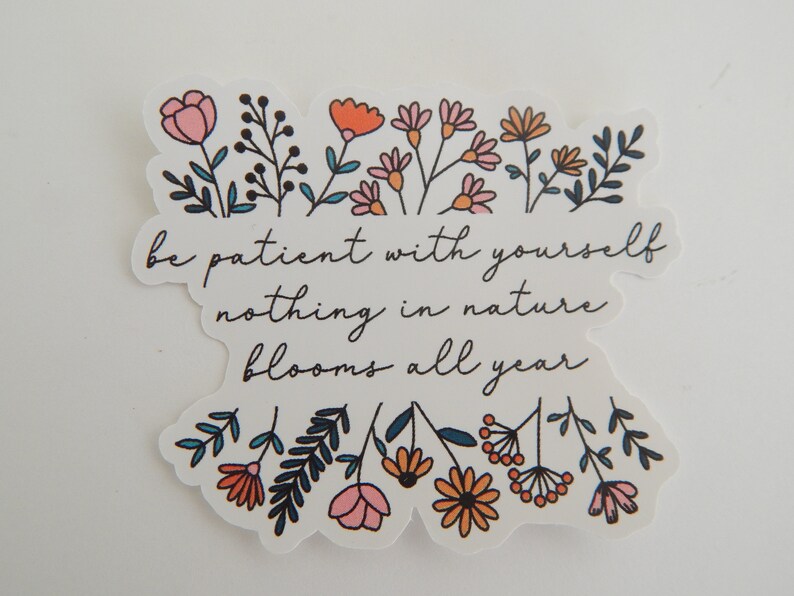 be patient with yourself
nothing in nature
blooms all year